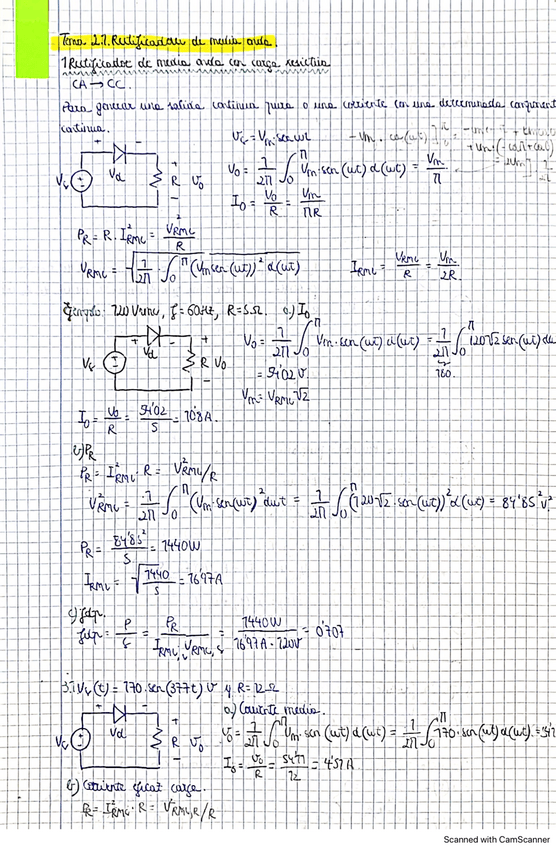 Tema 2.1. Rectificadores de media onda.
1 Rectificador de media onda con carga resistiva
CA → CC.
Para generar una salida continua pura o una corriente con una determinada componente
continua.
Vs = Vm·sen ωt
Vs Vd + - + R V0 -
V0 = 1/2Π ∫0^Π Vm·sen(ωt) d(ωt) = Vm/Π
I0 = V0/R = Vm/ΠR
PR = R·I²RMS = V²RMS/R
VRMS = √(1/2Π · ∫0^Π (Vm sen(ωt))² d(ωt)
IRMS = VRMS/R = Vm/2R.
Ejemplo: 120 Vrms, f = 60Hz, R=5Ω. a) I0
Vs + Vd - + R V0 -
V0 = 1/2Π ∫0^Π Vm·sen(ωt) d(ωt) = 1/2Π ∫0^Π 120√2 sen(ωt) dω
= 54'02 V.
Vm = VRMS √2
I0 = V0/R = 54'02/5 = 10'8 A.
b) PR
PR = I²RMS · R = V²RMS/R
V²RMS = 1/2Π ∫0^Π (Vm·sen(ωt)² dωt = 1/2Π ∫0^Π (120√2·sen(ωt))² d(ωt) = 84'85² V².
PR = 84'85²/5 = 1440 W
IRMS = √(1440/5) = 16'97 A
c) fdp.
fdp = P/S = PR/(IRMS,s·VRMS,s) = 1440W/(16'97A·120V) = 0'707
3.1 Vs(t) = 170·sen(377t) V y R = 12Ω
a) Corriente media.
Vs Vd + R V0 -
V0 = 1/2Π ∫0^Π Vm·sen(ωt) d(ωt) = 1/2Π ∫0^Π 170·sen(ωt) d(ωt) =
I0 = V0/R = 54'11/12 = 4'51 A
b) Corriente eficaz carga.
PR = I²RMS · R = V²RMS,R/R
Scanned with CamScanner